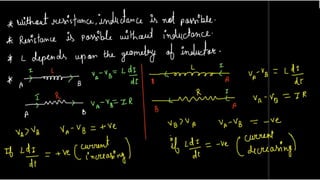 * Without resistance, inductance is not possible.
* Resistance is possible without inductance.
* L depends upon the geometry of inductor.
*
I L
A B
V_A - V_B = L dI/dt
I R
A B
V_A - V_B = I R
V_A > V_B V_A - V_B = +ve
If L dI/dt = +ve (current increasing)
I L I
B A
V_A - V_B = L dI/dt
R I
B A
V_A - V_B = I R
V_B > V_A V_A - V_B = -ve
if L dI/dt = -ve (current decreasing)